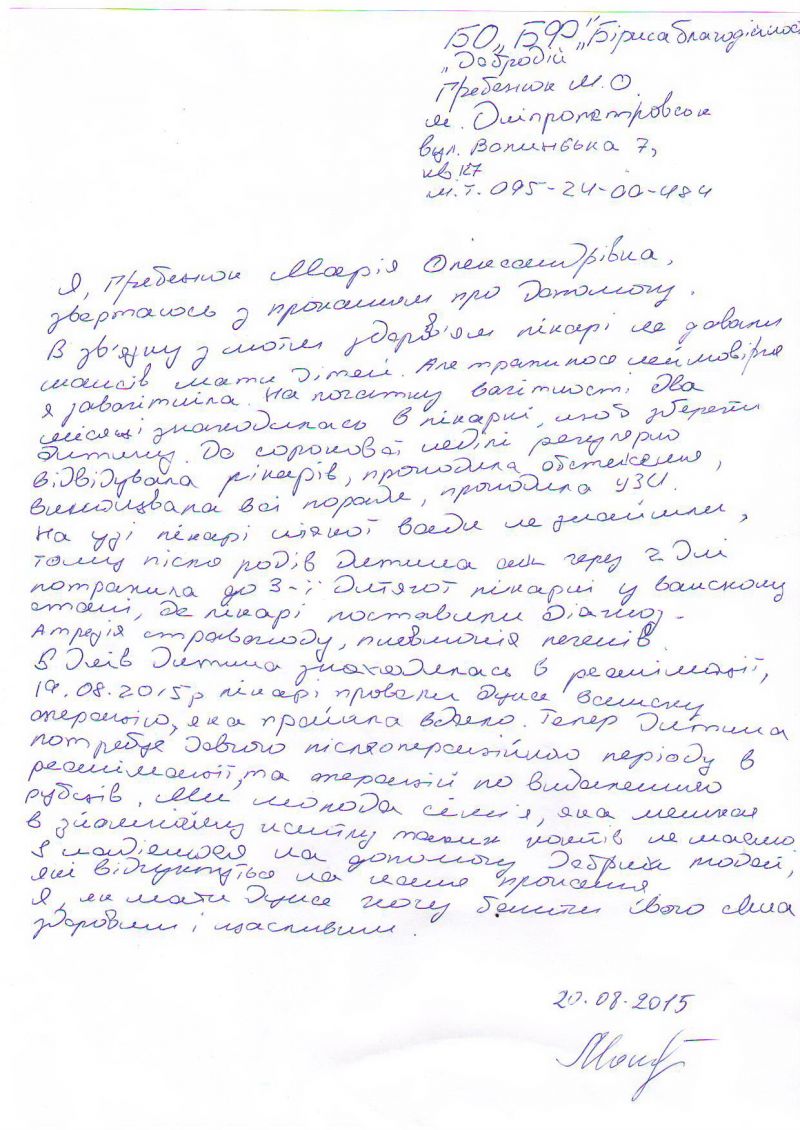 БО „БФ" „Біржа благодійності
„Добродій"
Гребенюк М.О.
м. Дніпропетровськ
вул. Волинська 7,
кв. 127
м.т. 095-24-00-484
Я, Гребенюк Марія Олександрівна,
звертаюсь з проханням про допомогу.
В зв'язку з моїм здоров'ям лікарі не давали
шансів мати дітей. Але трапилося неймовірне
я завагітніла. На початку вагітності два
місяці знаходилась в лікарні, щоб зберегти
дитину. До сорокової неділі регулярно
відвідувала лікарів, проходила обстеження,
виконувала всі поради, проходила УЗИ.
На узі лікарі ніякої вади не знайшли,
тому після родів дитина аж через 2 дні
потрапила до 3-ї дитячої лікарні у важкому
стані, де лікарі поставили діагноз -
Атрезія стравоходу, пневмонія легенів.
5 днів дитина знаходилась в реанімації,
19.08.2015р лікарі провели дуже важку
операцію, яка пройшла вдало. Тепер дитина
потребує довгого післяопераційного періоду в
реанімації, та операцій по видаленню
рубців. Ми молода сім'я, яка мешкає
в знаємному житлу таких коштів не маємо
І надіємося на допомогу добрих людей,
які відгукнуться на наше прохання
Я, як мати дуже хочу бачити свого сина
здоровим і щасливим.
20.08.2015